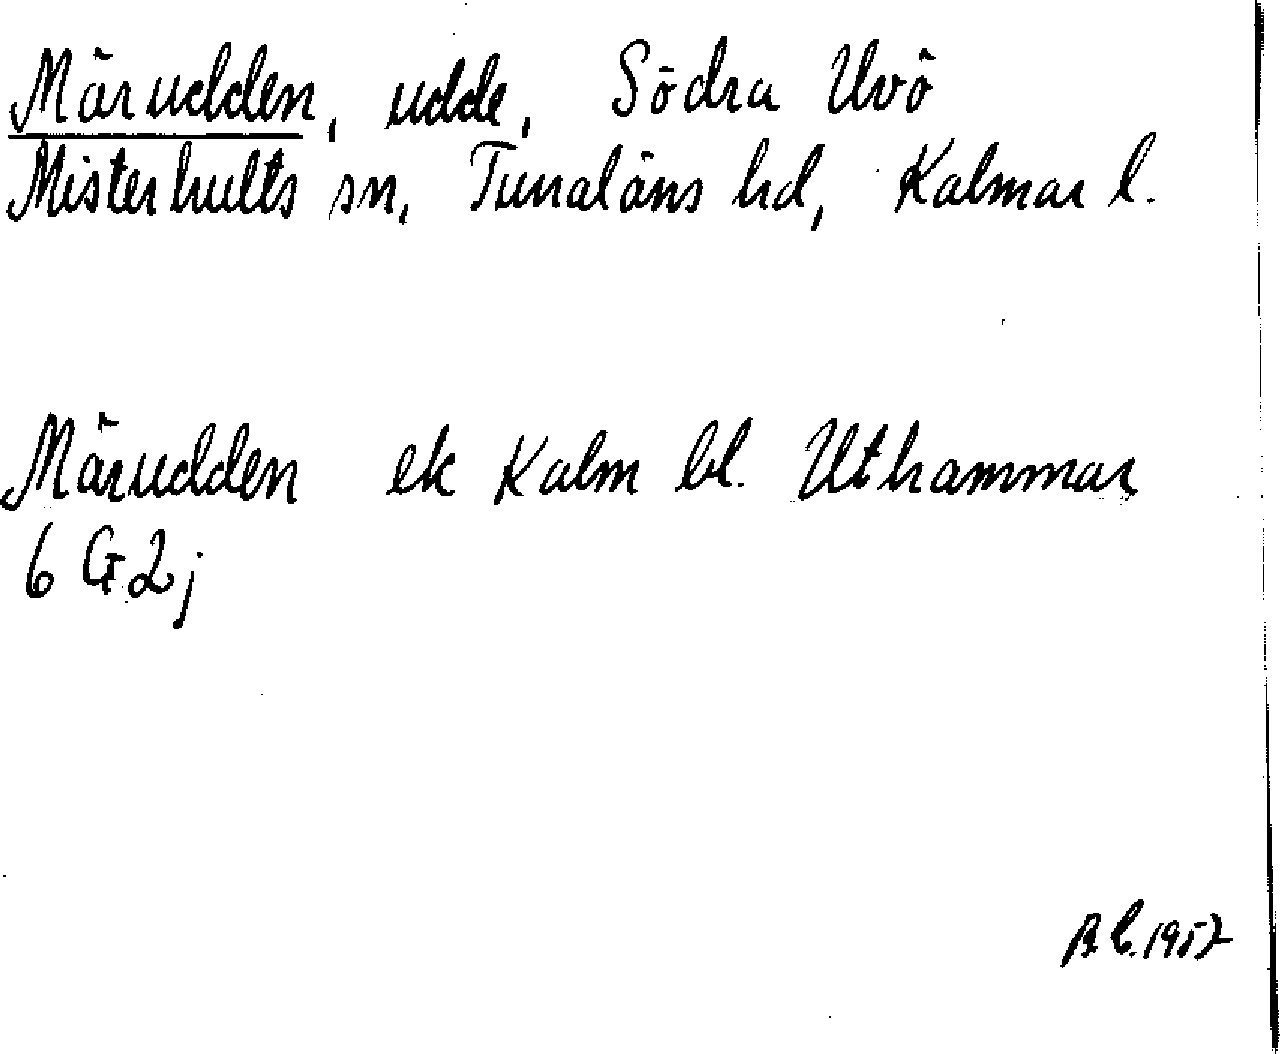 Märudden, udde, Södra Uvö
Misterhults sn, Tunaläns hd, Kalmar l.
Märudden ek Kalm bl. Uthammar
6 G 2 j
1957